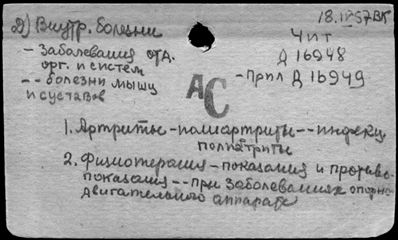 Д) Внутр. болезни
18.IV 57 ВК
- Заболевания отд.
орг. и систем
-- болезни мышц
и суставов
Чит
Д 16948
- Прил Д 16949
АС
1. Артриты - полиартриты -- инфекц
полиартриты
2. Физиотерапия - показания и противо-
показания -- при заболеваниях опорно-
двигательного аппарата